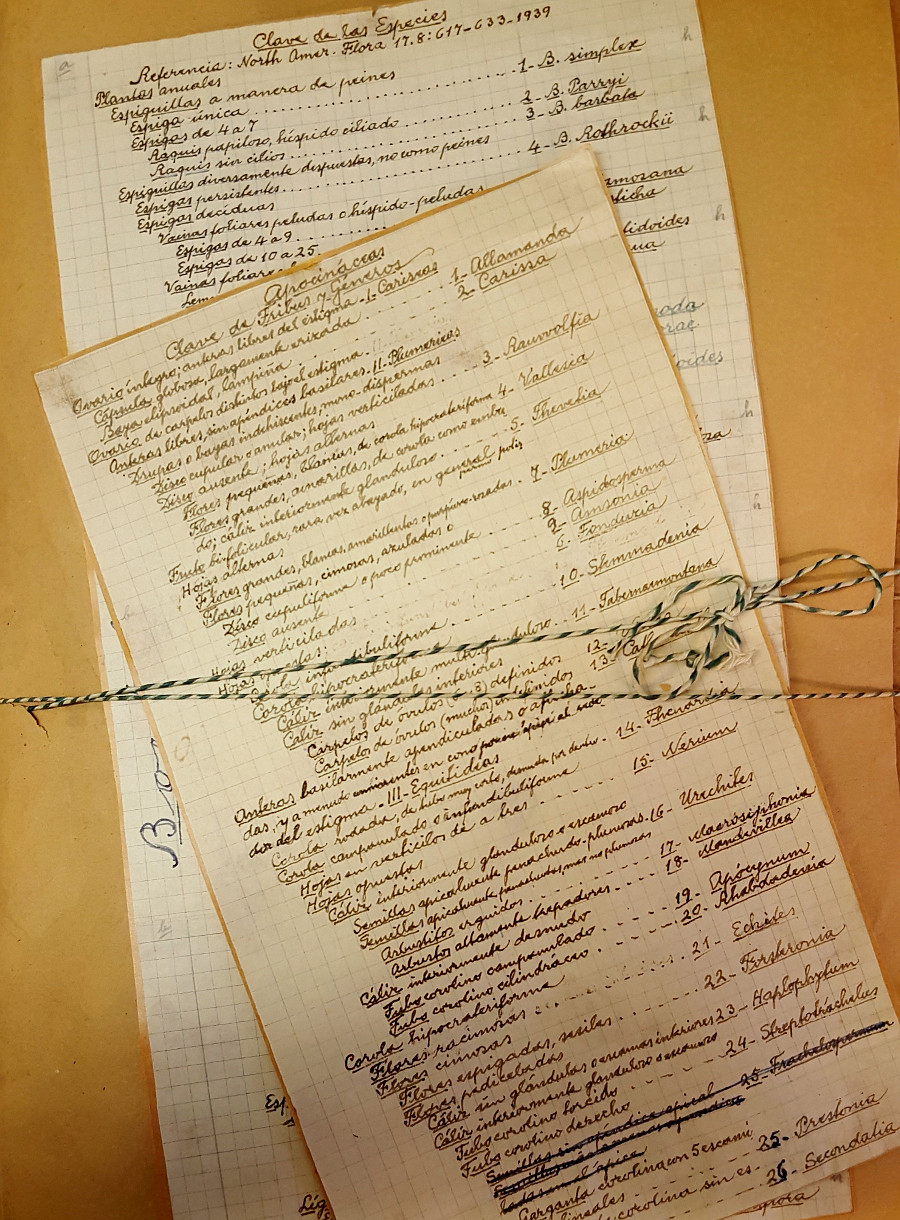 a
Clave de las Especies
Referencia: North Amer. Flora 17.8:617-633-1939
Plantas anuales
Espiguillas a manera de peines
Espiga única 1- B. simplex
Espigas de 4 a 7
Raquis papiloso, híspido ciliado 2- B. Parryi
Raquis sin cilios 3- B. barbata
Espiguillas diversamente dispuestas, no como peines
Espigas persistentes 4- B. Rothrockii
Espigas deciduas
Vainas foliares peludas o híspido-peludas
Espigas de 4 a 9
Espigas de 10 a 25
Vainas foliare
Lem
h
h
h
h
h
h
amosana
lidoides
oides
Apocináceas
Clave de Tribus y Géneros
Ovario íntegro; anteras libres del estigma - I - Cariseas
Cápsula globosa, largamente erizada 1- Allamanda
Baya elipsoidal, lampiña 2- Carissa
Ovario de carpelos distintos bajo el estigma
Anteras libres, sin apéndices basilares - II - Plumerieas
Drupas o bayas indehiscentes, mono-dispermas
Disco cupular o anular; hojas verticiladas 3- Rauvolfia
Disco ausente; hojas alternas
Flores pequeñas, blancas, de corola hipocrateriforme 4- Vallesia
Flores grandes, amarillas, de corola como embu
do; cáliz interiormente glanduloso 5- Thevetia
Fruto bi-folicular, rara vez abayado, en general polis
Hojas alternas
Flores grandes, blancas, amarillentas o purpúreo-rosadas 7- Plumeria
Flores pequeñas, cimosas, azuladas o
Disco cupuliforme o poco prominente 8- Aspidosperma
Disco ausente 9- Amsonia
Hojas verticiladas 6- Tonduzia
Hojas opuestas
Corola infundibuliforme 10- Stemmadenia
Corola hipocrateriforme
Cáliz interiormente multi-glanduloso 11- Tabernaemontana
Cáliz sin glándulas interiores
Carpelos de óvulos definidos 12-
Carpelos de óvulos (muchos) indefinidos 13- Cat
Anteras basilarmente apendiculadas o aflecha-
das, y a menudo
dor del estigma - III - Equitídeas
Corola rodada, de tubo muy corto, 14- Thenardia
Corola campanulada o infundibuliforme
Hojas en verticilos de a tres 15- Nerium
Hojas opuestas
Cáliz interiormente glanduloso o escamoso
Semillas apicalmente penachudo-plumosas 16- Urechites
Semillas apicalmente penachudas, mas no plumosas
Arbustitos erguidos 17- Macrosiphonia
Arbustos altamente trepadores 18- Mandevilla
Cáliz interiormente desnudo
Tubo corolino campanulado 19- Apocynum
Tubo corolino cilindráceo 20- Rhabdadenia
Corola hipocrateriforme
Flores racimosas 21- Echites
Flores cimosas
Flores espigadas, sesiles 22- Forsteronia
Flores pediceladas
Cáliz sin glándulas o escamas interiores 23- Haplophytum
Cáliz interiormente glanduloso o escamoso
Tubo corolino torcido 24- Streptotrachelus
Tubo corolino derecho
Semillas sin apéndice apical 25- Trachelospermum
Garganta corolina con 5 escami
lineales 25- Prestonia
corolina sin es 26- Secondatia
B
Esp.
Lig.
pora